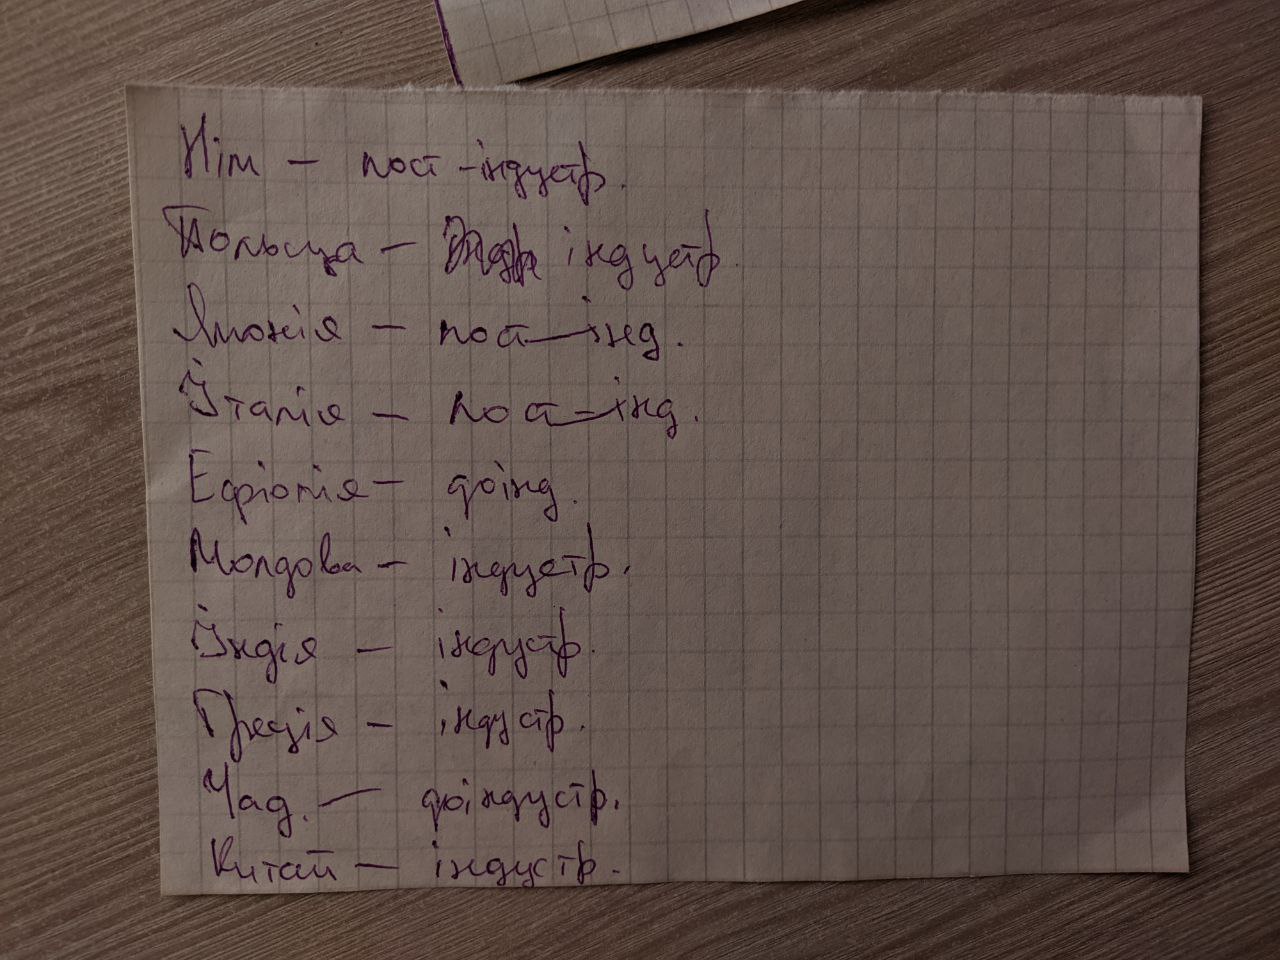 Нім — пост-індустр.
Польща — індустр.
Японія — пост-інд.
Італія — пост-інд.
Ефіопія — доінд.
Молдова — індустр.
Індія — індустр.
Греція — індустр.
Чад. — доіндустр.
Китай — індустр.